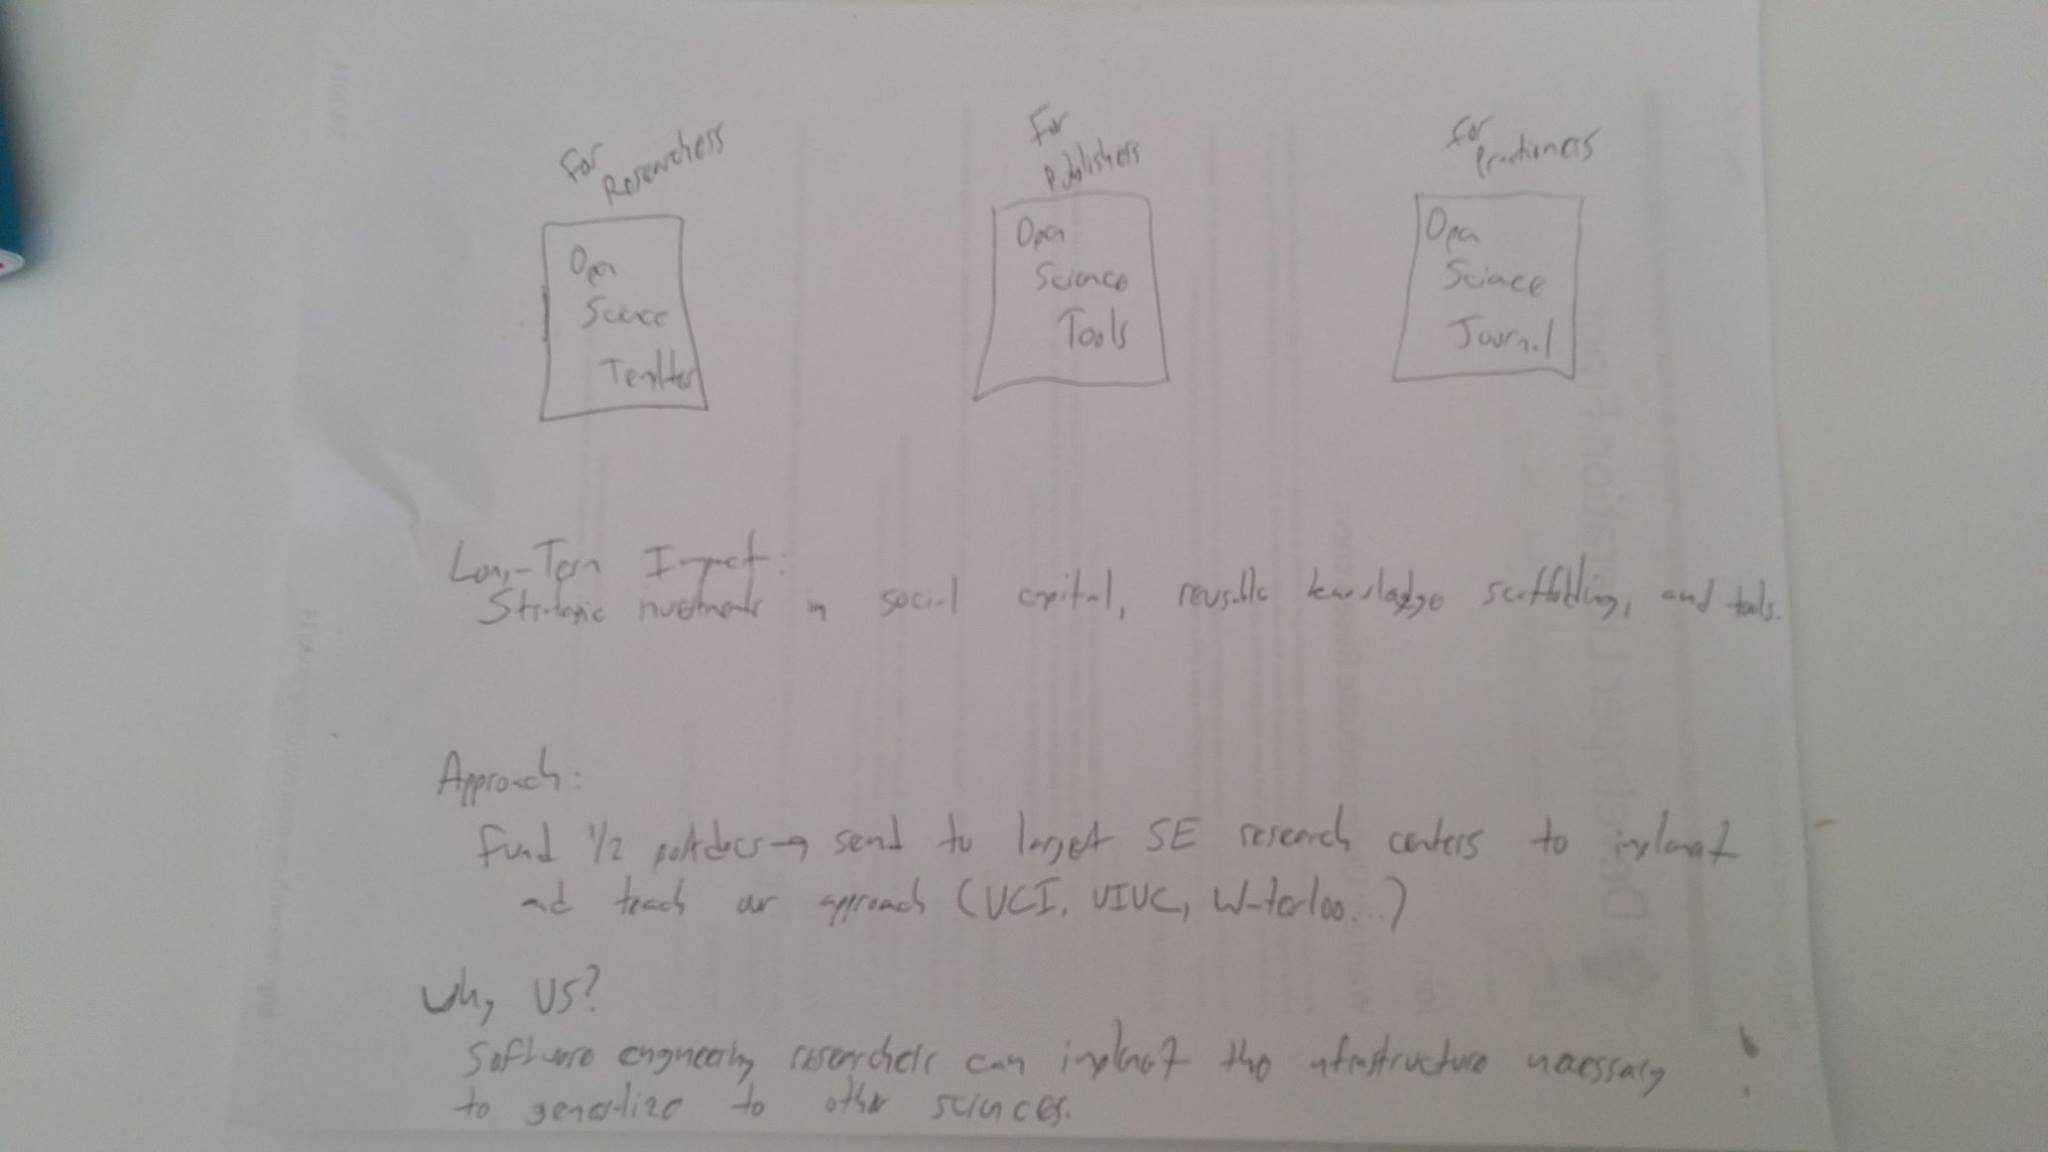 For Researchers
For Publishers
For Practioners
Open
Science
Templates
Open
Science
Tools
Open
Science
Journal
Long-Term Impact:
Strategic investments in social capital, reusable knowledge scaffolding, and tools.
Approach:
Fund 1/2 postdocs → send to largest SE research centers to implement
and teach our approach (UCI, UIUC, Waterloo...)
Why US?
Software engineering researchers can implement the infrastructure necessary
to generalize to other sciences.